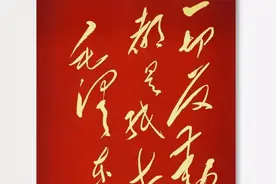 一切反动
都是纸老
毛泽东